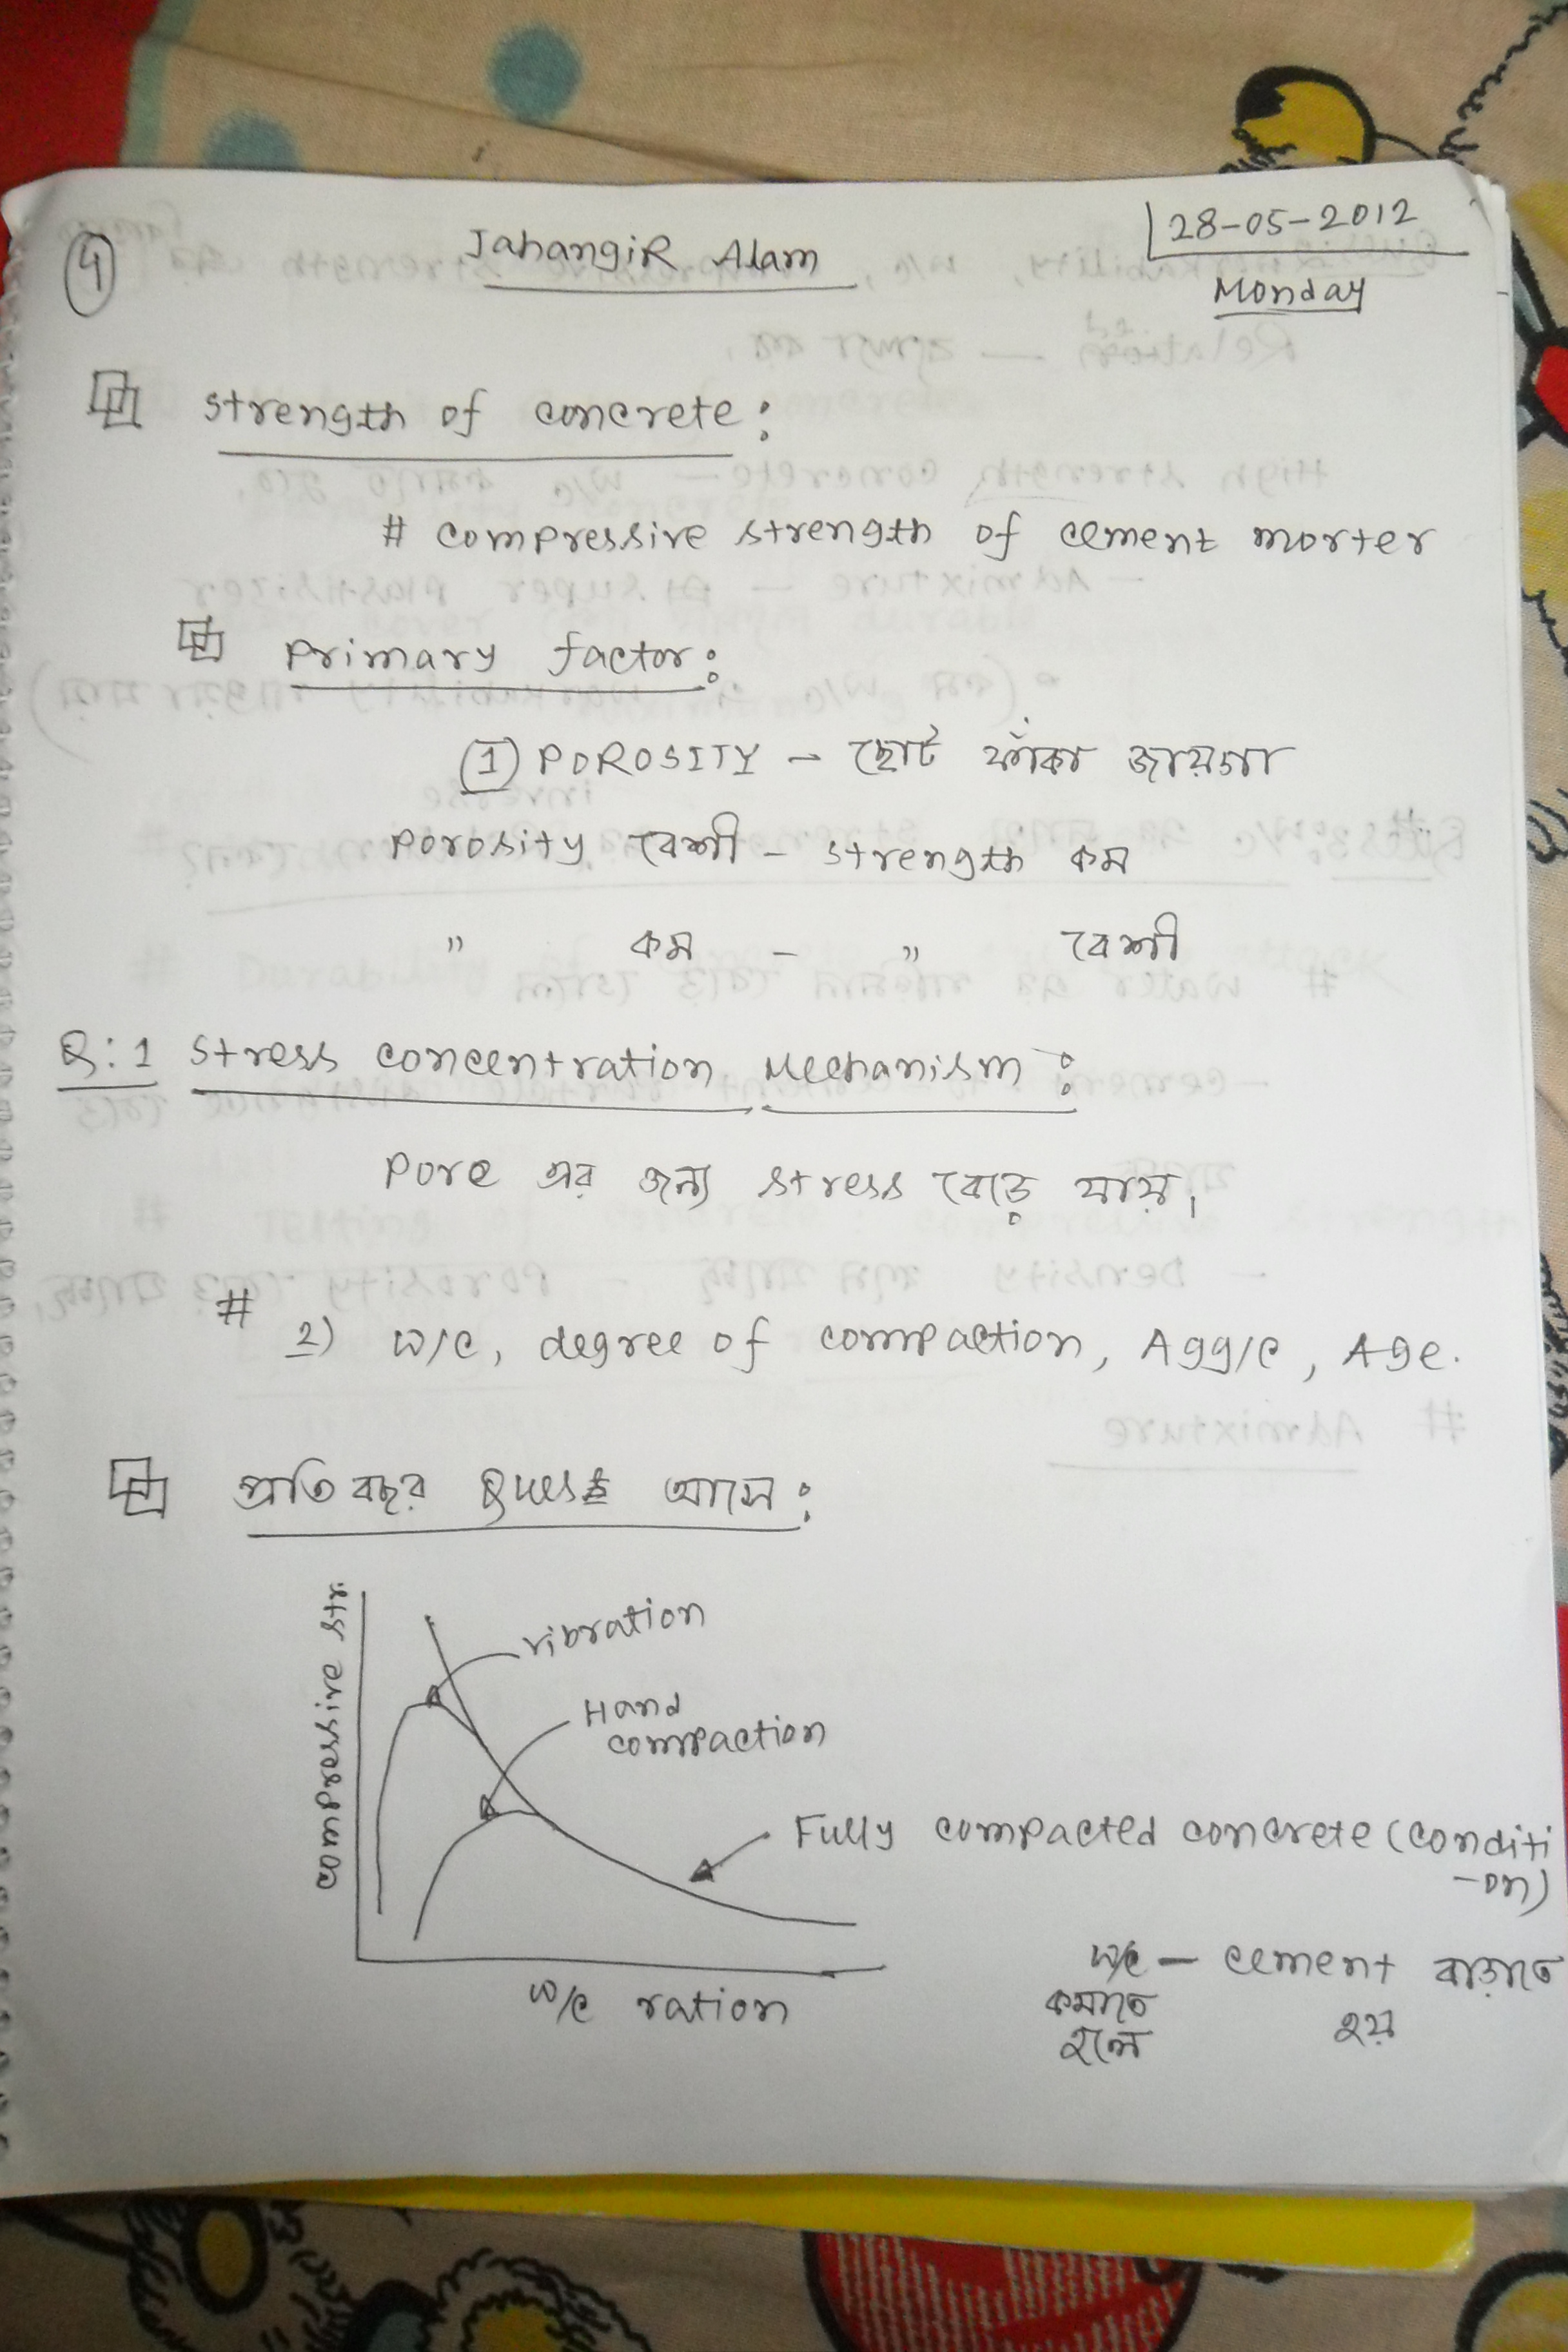 4
Jahangir Alam
28-05-2012
Monday
strength of concrete:
# compressive strength of cement morter
Primary factor:
(1) POROSITY - ছোট ফাঁকা জায়গা
Porosity বেশী - strength কম
" কম - " বেশী
Q:1 stress concentration Mechanism:
Pore এর জন্য stress বেড়ে যায়।
# 2) w/c, degree of compaction, Agg/c, Age.
প্রতি বছর Ques আসে:
compressive str.
vibration
Hand
compaction
Fully compacted concrete (conditi
-on)
w/c ration
w/c - cement বাড়াতে
কমাতে হয়
হলে